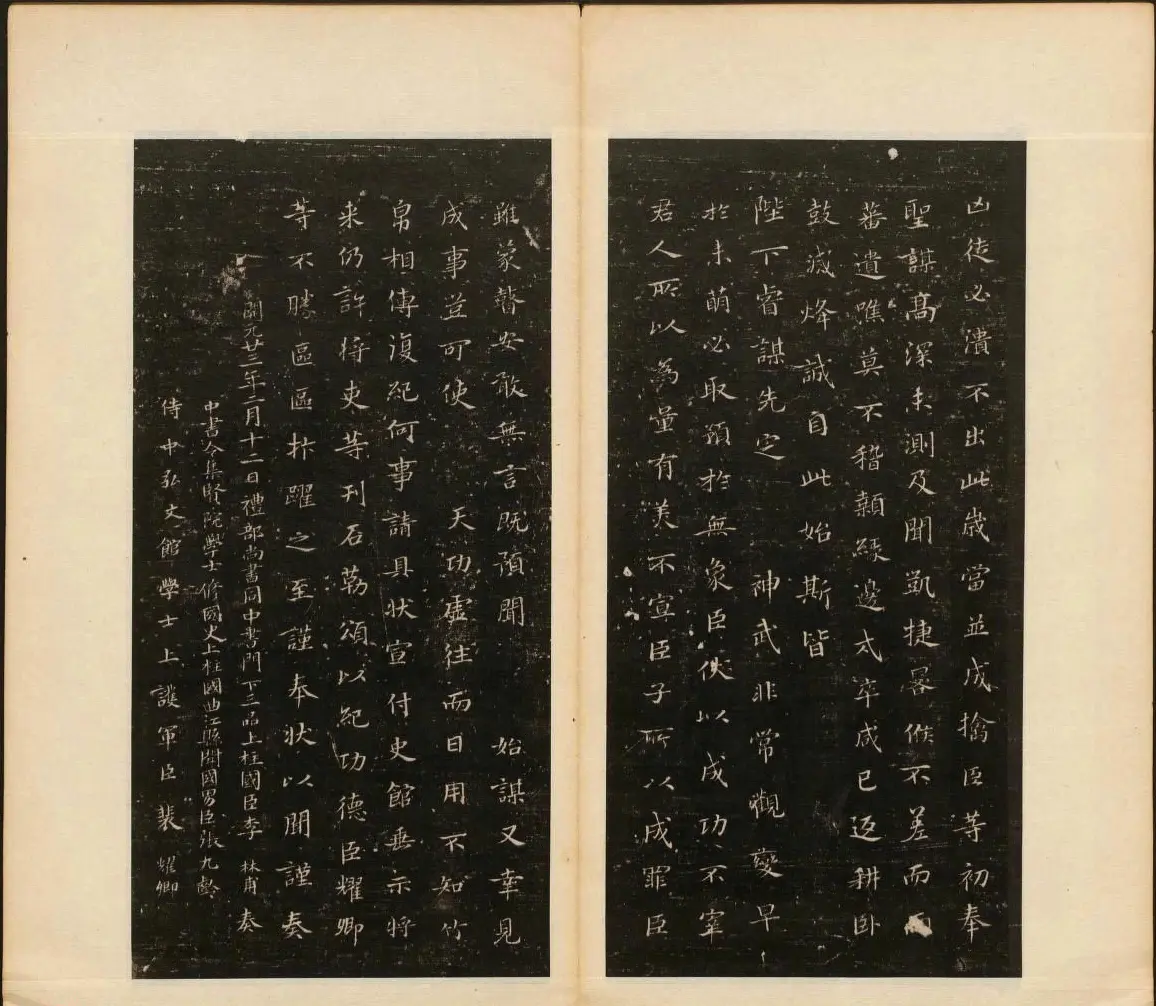 凶徒必潰不出此歲當並成擒臣等初奉
聖謀高深未測及聞凱捷晷候不差而
蕃遺噍莫不稽顙緣邊戍卒咸已返耕卧
鼓滅烽誠自此始斯皆
陛下睿謀先定 神武非常觀變早
於未萌必取預於無象臣伏以成功不宰
君人所以為量有美不宣臣子所以成罪臣
雖蒙瞽安敢無言既預聞 始謀又幸見
成事豈可使 天功虛往而日用不知竹
帛相傳復紀何事請具狀宣付史館垂示將
来仍許將吏等刊石勒頌以紀功德臣耀卿
等不勝區區抃躍之至謹奉狀以聞謹奏
開元廿三年二月十二日禮部尚書同中書門下三品上柱國臣李林甫奏
中書令集賢院學士修國史上柱國曲江縣開國男臣張九齡
侍中弘文館學士上護軍臣裴耀卿